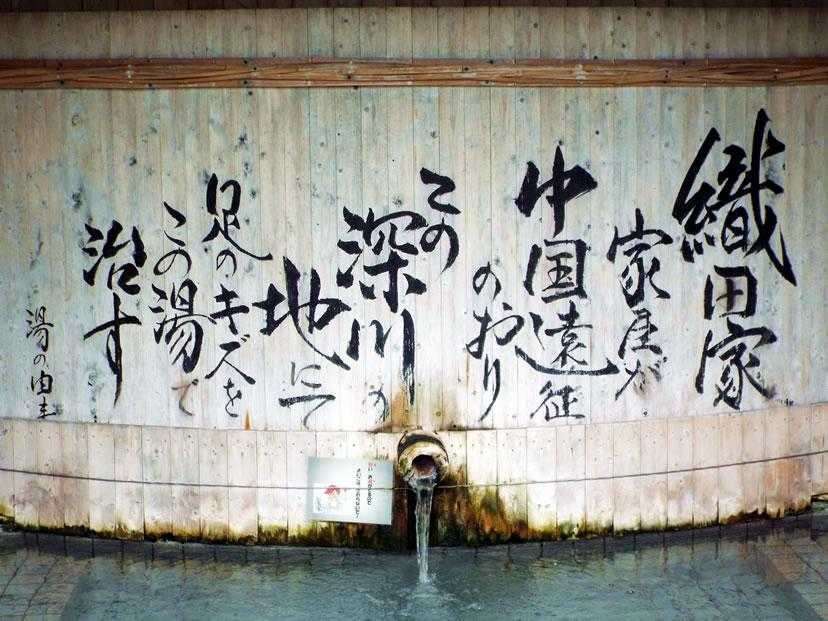 織田家
家臣が
中国遠征
のおり
この
深川の
地にて
足のキズを
この湯で
治す
湯の由来